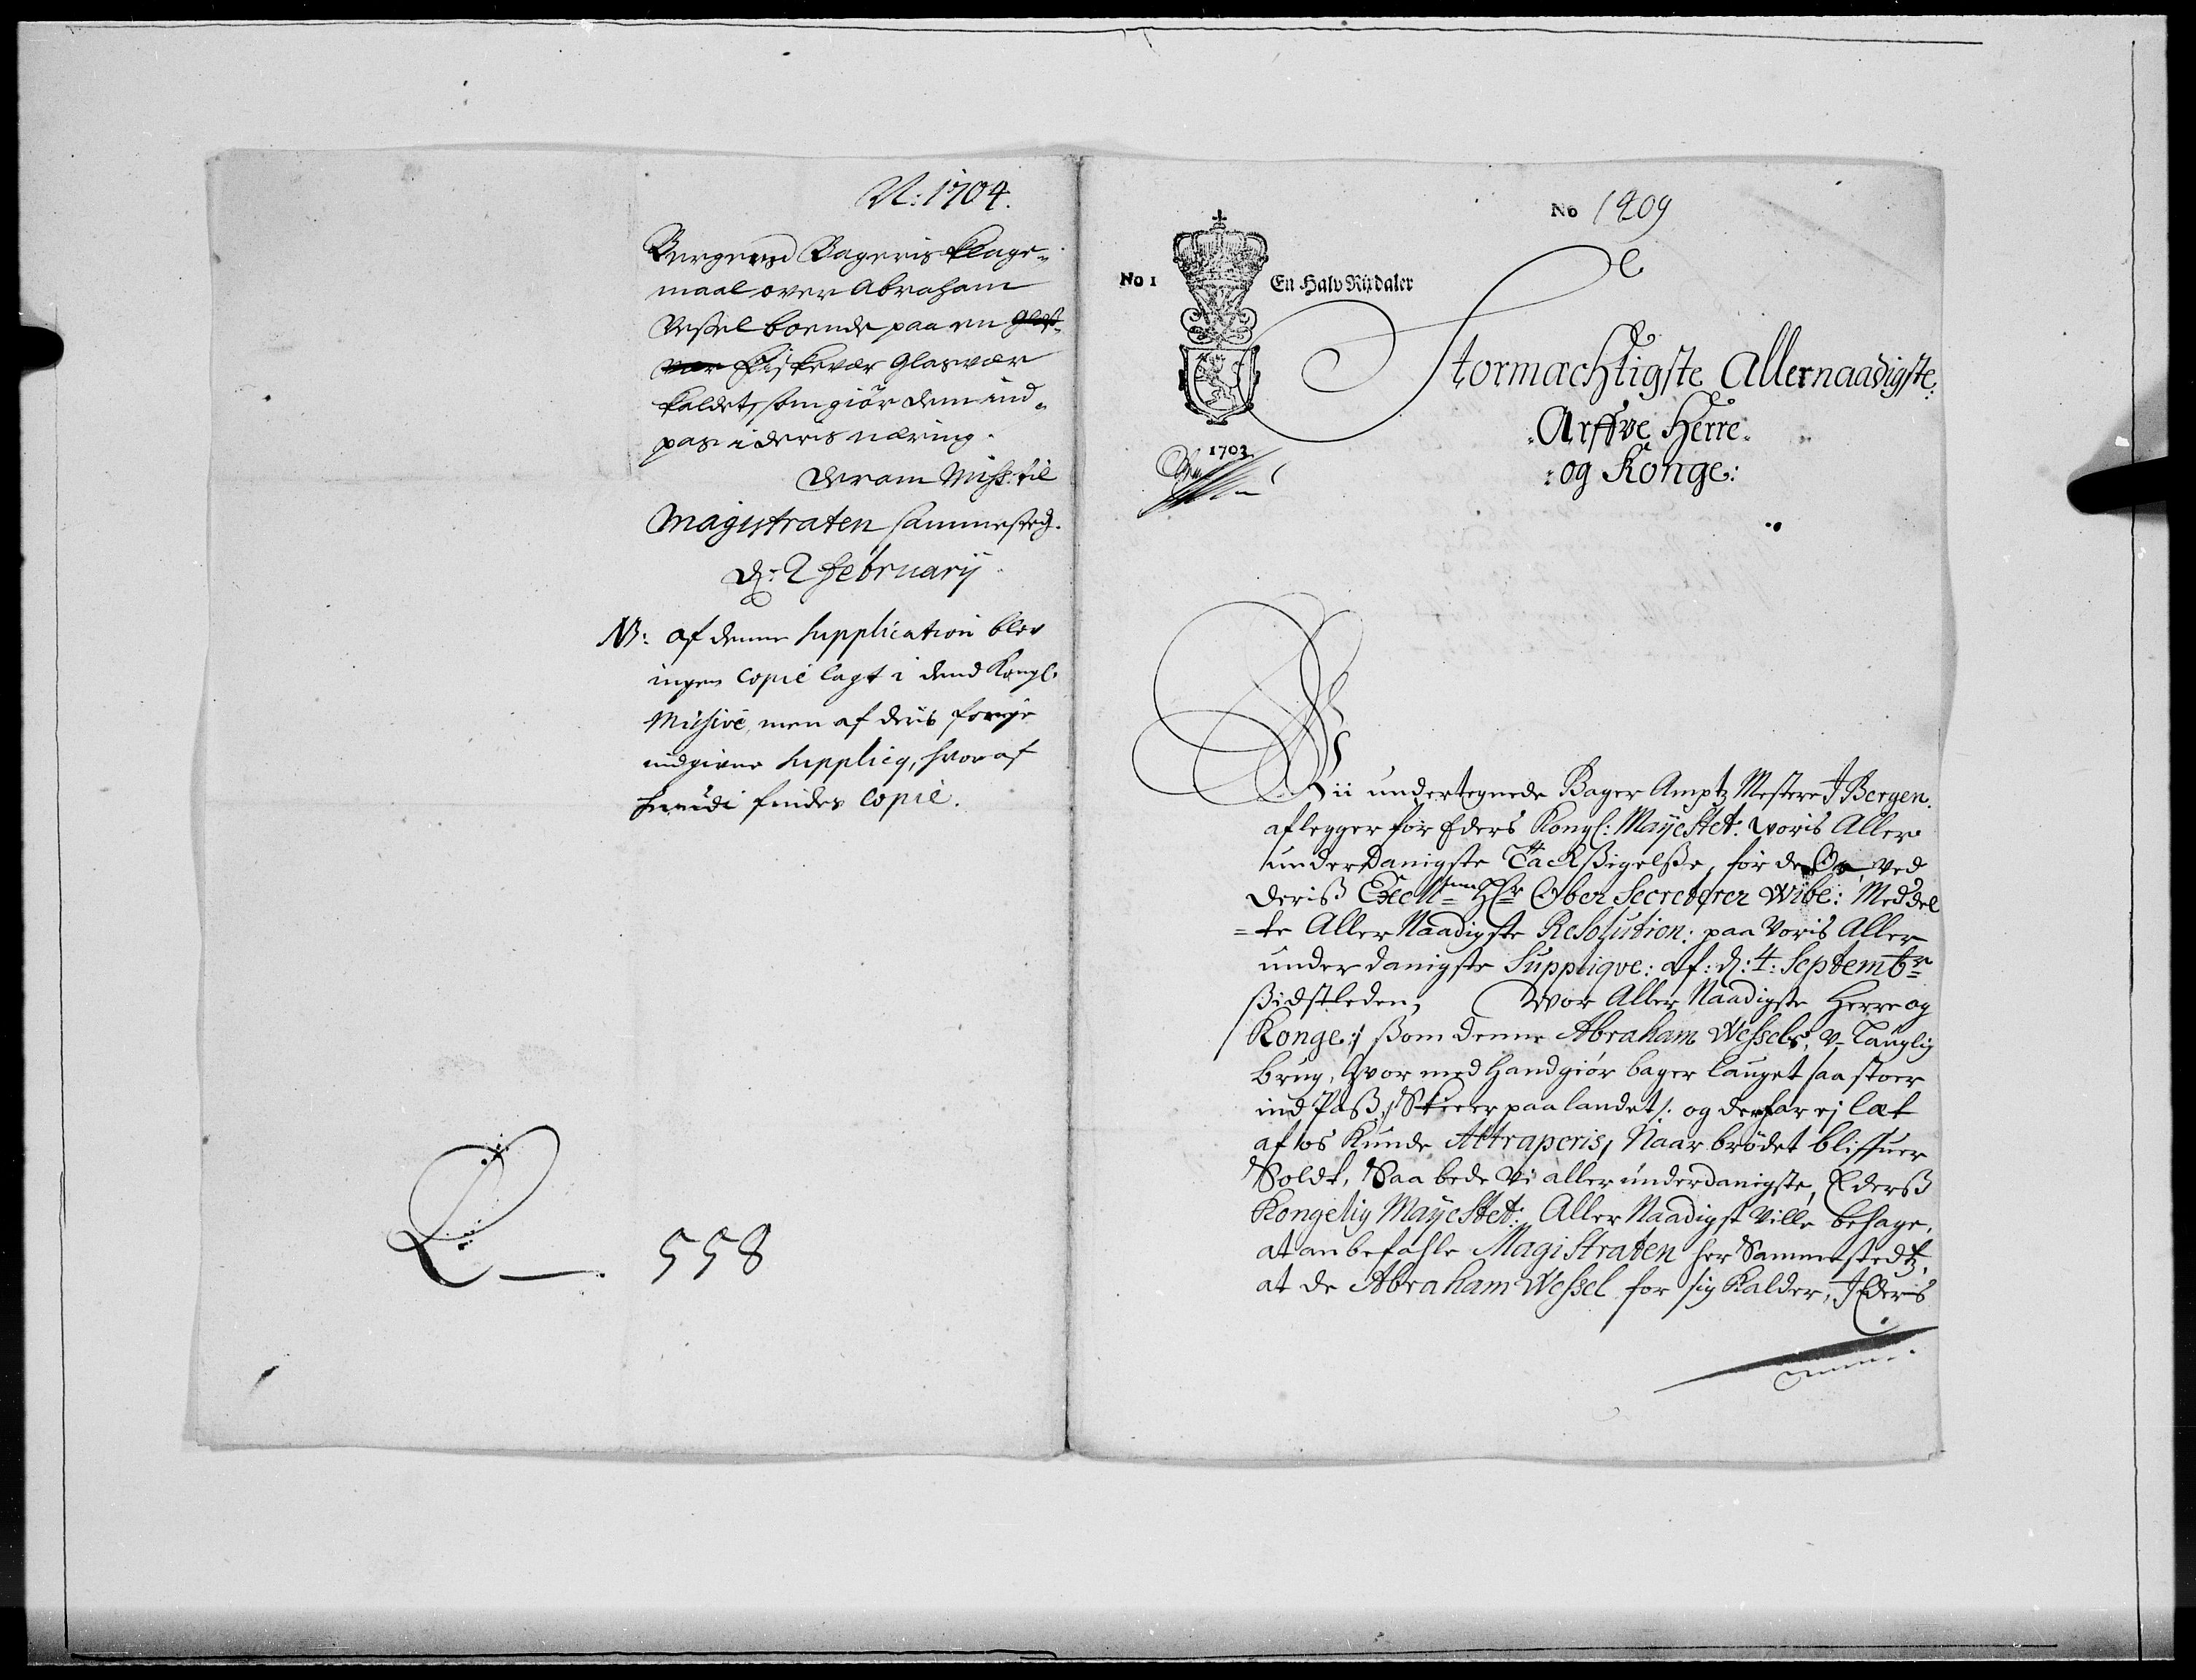 A: 1704.
Bergens Bageris klage-
maal over Abraham
Vessel boende paa en Glas-
vær Fiskevær Glasvær
kaldet, som giør dem ind-
pas i deris næring.
Derom Miss: til
Magistraten sammested.
d: 2 February
NB: af denne supplication blev
ingen Copie lagt i dend Kongl.
Missive, men af deris forige
indgivne Suppliqv, hvoraf
herudi findes Copie.
L 558
No 1409
No 1 En Halv Rixdaler
1703
Stormæchtigste Allernaadigste
Arffve Herre
og Konge:
Vii undertegnede Bager Ampts Mestere J Bergen.
aflegger for Eders Kongl: Mayestet. woris Aller
underdanigste Tacksigelsse, for de Os, ved
deriß Excell: Hr Ober Secreterer Wibe: Meddel
-te Aller Naadigste Resolution: paa voris Aller
underdanigste Supplique: af: d: 4: Septembr
ßidstleden, Wor Aller Naadigste Herre og
Konge:/ ßom denne Abraham Wessels, U-Tauglig
brug, hvor med hand giør bager lauget saa stoer
ind Paß, Skeer paa landet /: og derfor ej let
af os Kunde Attraperis, Naar brødet bliffuer
Soldt, Saa bede Vi allerunderdanigste, Ederß
Kongelig Mayestet: Aller Naadigst Ville behage,
at anbefahle Magistraten her Sammestedtz,
at de Abraham Wessel for sig Kalder, J Ederis